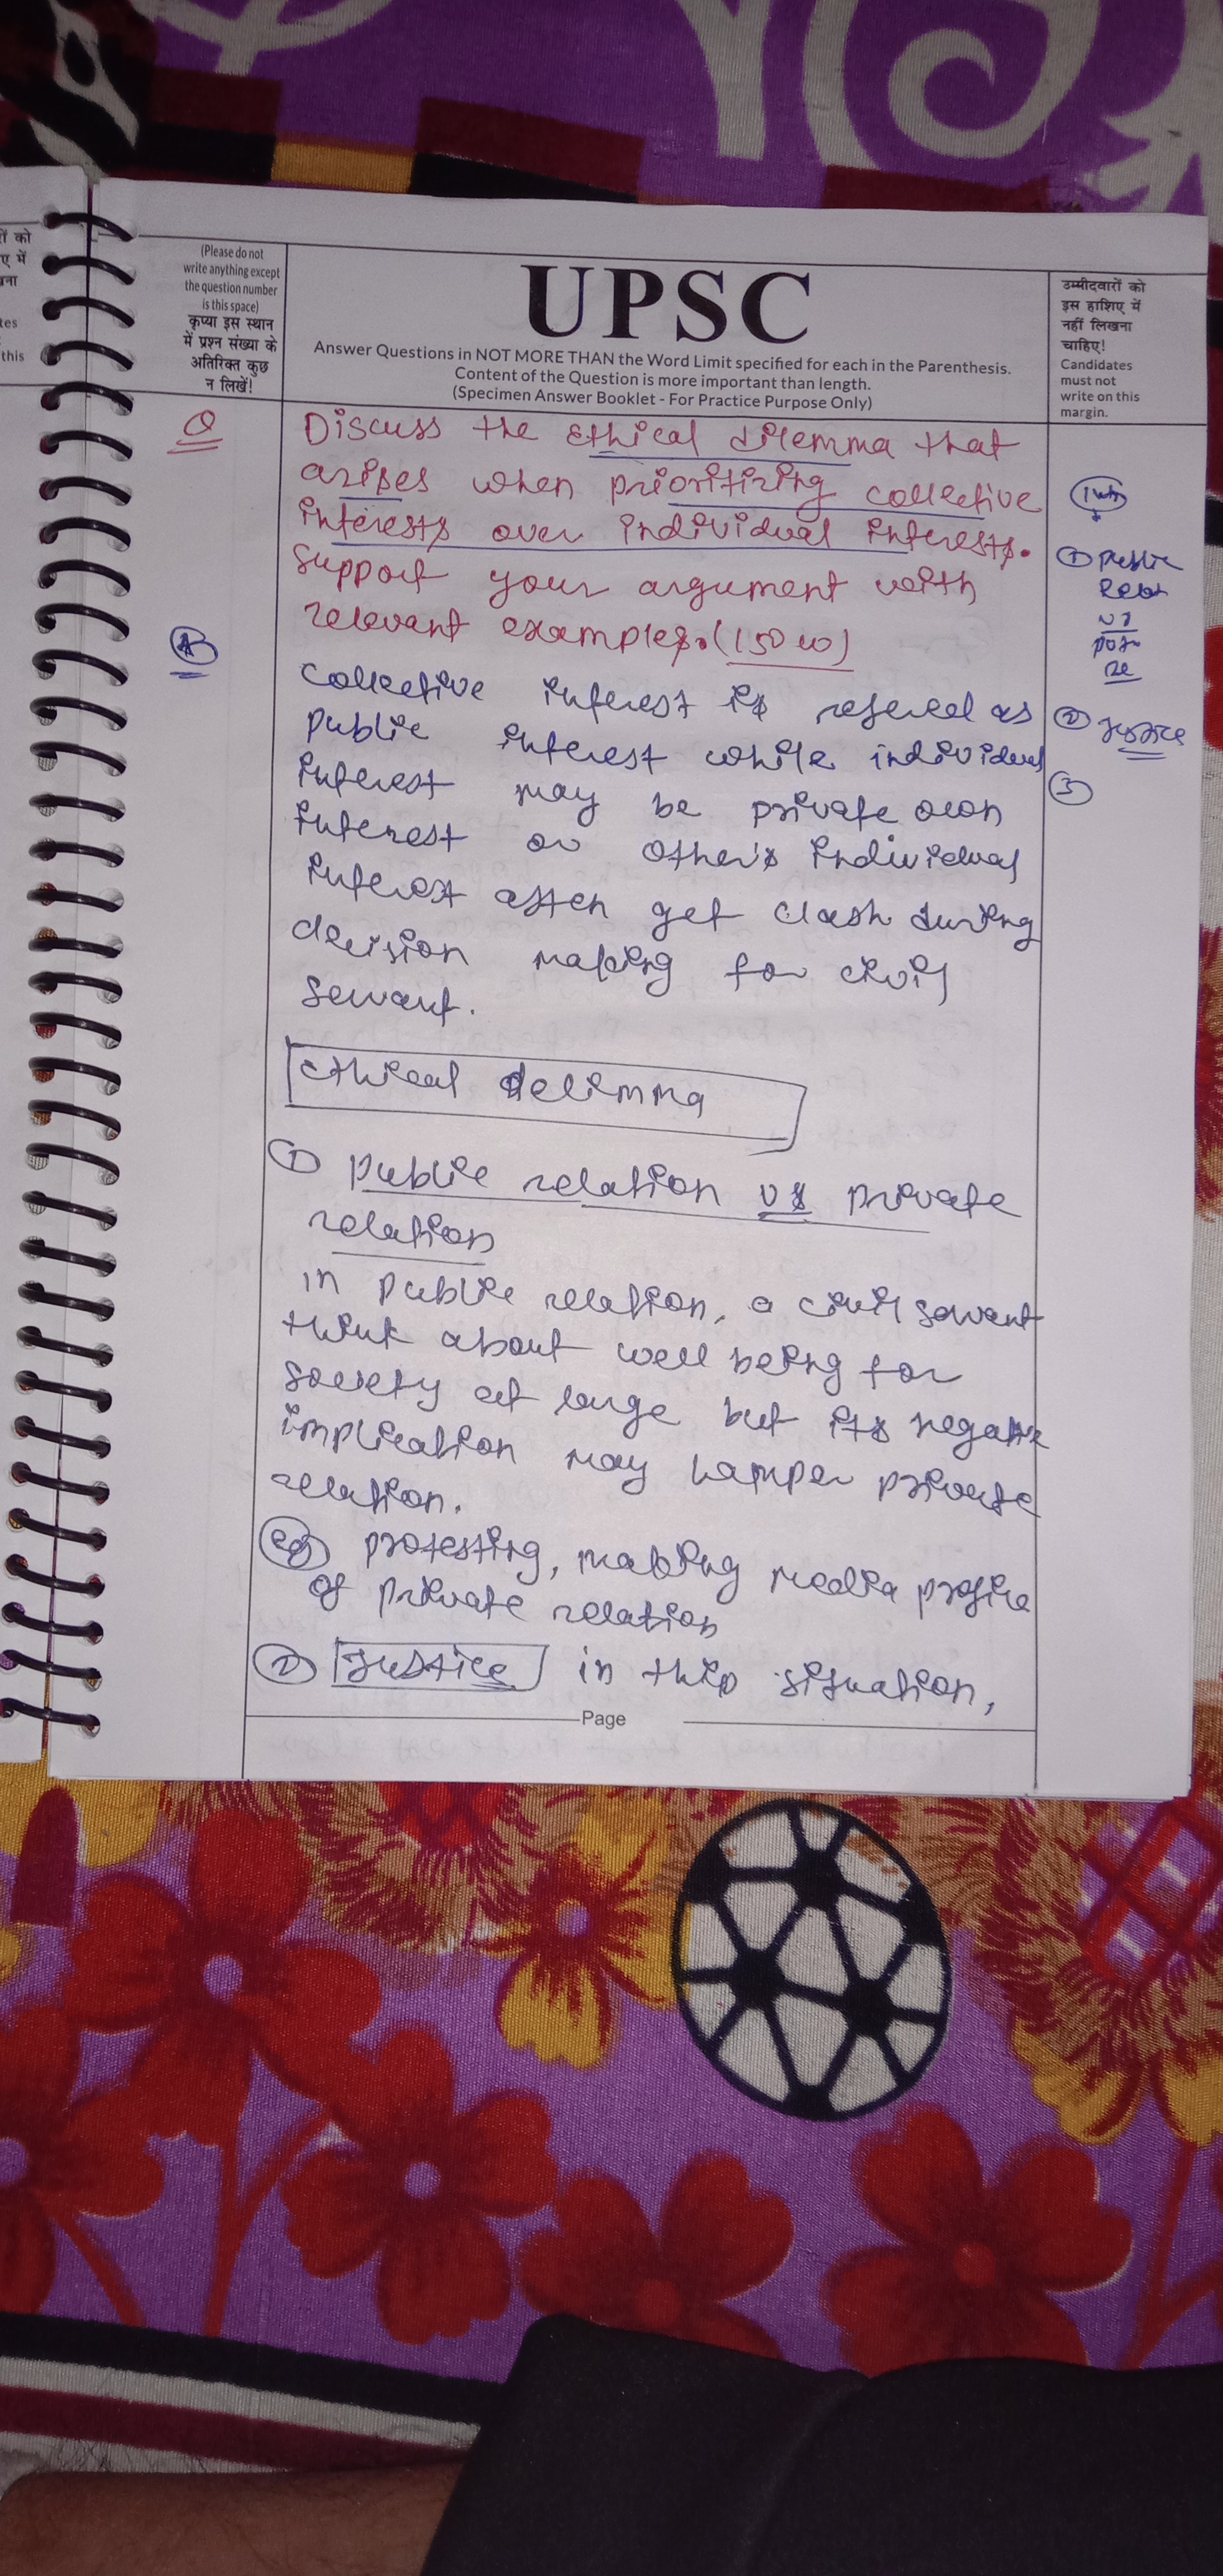 ों को
ए में
ना
tes
this
(Please do not
write anything except
the question number
is this space)
कृप्या इस स्थान
में प्रश्न संख्या के
अतिरिक्त कुछ
न लिखें!
UPSC
Answer Questions in NOT MORE THAN the Word Limit specified for each in the Parenthesis.
Content of the Question is more important than length.
(Specimen Answer Booklet - For Practice Purpose Only)
उम्मीदवारों को
इस हाशिए में
नहीं लिखना
चाहिए!
Candidates
must not
write on this
margin.
Q
Discuss the Ethical dilemma that
arises when prioritizing collective
interests over individual interests.
Support your argument with
relevant examples. (150 w)
A
Collective interest is refered as
public interest while individual
interest may be private own
interest or other's individual
interest often get clash during
decision making for civil
servant.
Ethical delimma
① Public relation vs private
relation
in public relation, a civil servant
think about well being for
society at large but its negative
implication may hamper private
relation.
eg protesting, making media profile
of private relation
② Justice in this situation,
Page
Int
① Public
vs
② Justice
③